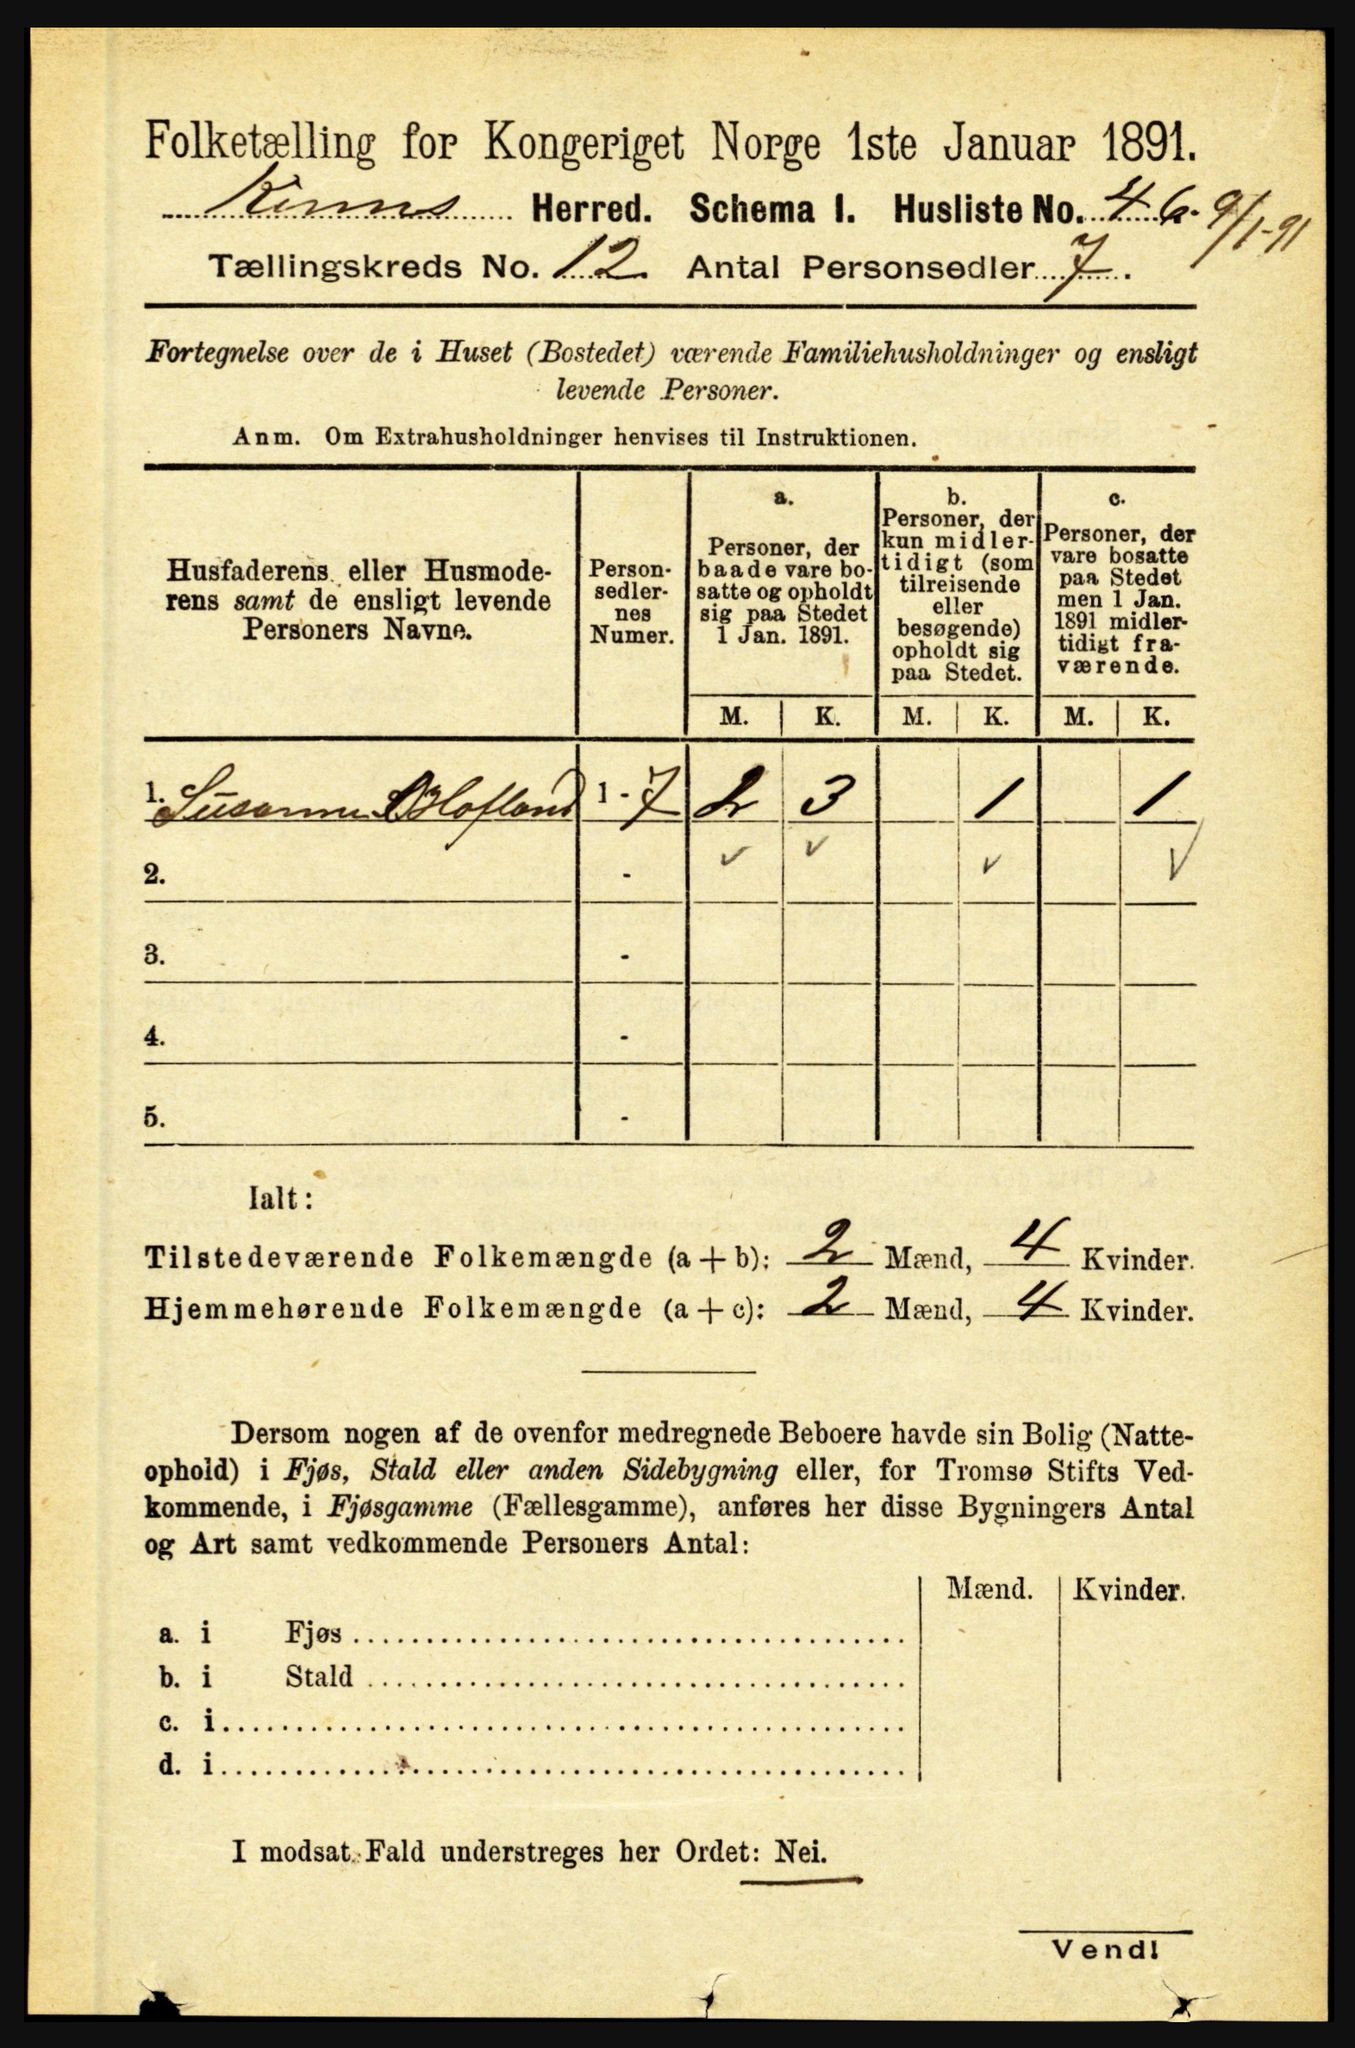 Folketælling for Kongeriget Norge 1ste Januar 1891.
Kinns Herred. Schema I. Husliste No. 46. 9/1-91
Tællingskreds No. 12. Antal Personsedler 7.
Fortegnelse over de i Huset (Bostedet) værende Familiehusholdninger og ensligt
levende Personer.
Anm. Om Extrahusholdninger henvises til Instruktionen.
Husfaderens eller Husmode-
rens samt de ensligt levende
Personers Navne.
Person-
sedler-
nes
Numer.
a.
Personer, der
baade vare bo-
satte og opholdt
sig paa Stedet
1 Jan. 1891.
b.
Personer, der
kun midler-
tidigt (som
tilreisende
eller
besøgende)
opholdt sig
paa Stedet.
c.
Personer, der
vare bosatte
paa Stedet
men 1 Jan.
1891 midler-
tidigt fra-
værende.
M. K. M. K. M. K.
1. Susanne Hofland 1 - 7 2 3 1 1
2. -
3. -
4. -
5. -
Ialt:
Tilstedeværende Folkemængde (a + b): 2 Mænd, 4 Kvinder.
Hjemmehørende Folkemængde (a + c): 2 Mænd, 4 Kvinder.
Dersom nogen af de ovenfor medregnede Beboere havde sin Bolig (Natte-
ophold) i Fjøs, Stald eller anden Sidebygning eller, for Tromsø Stifts Ved-
kommende, i Fjøsgamme (Fællesgamme), anføres her disse Bygningers Antal
og Art samt vedkommende Personers Antal:
Mænd. Kvinder.
a. i Fjøs
b. i Stald
c. i
d. i
I modsat Fald understreges her Ordet: Nei.
Vend!